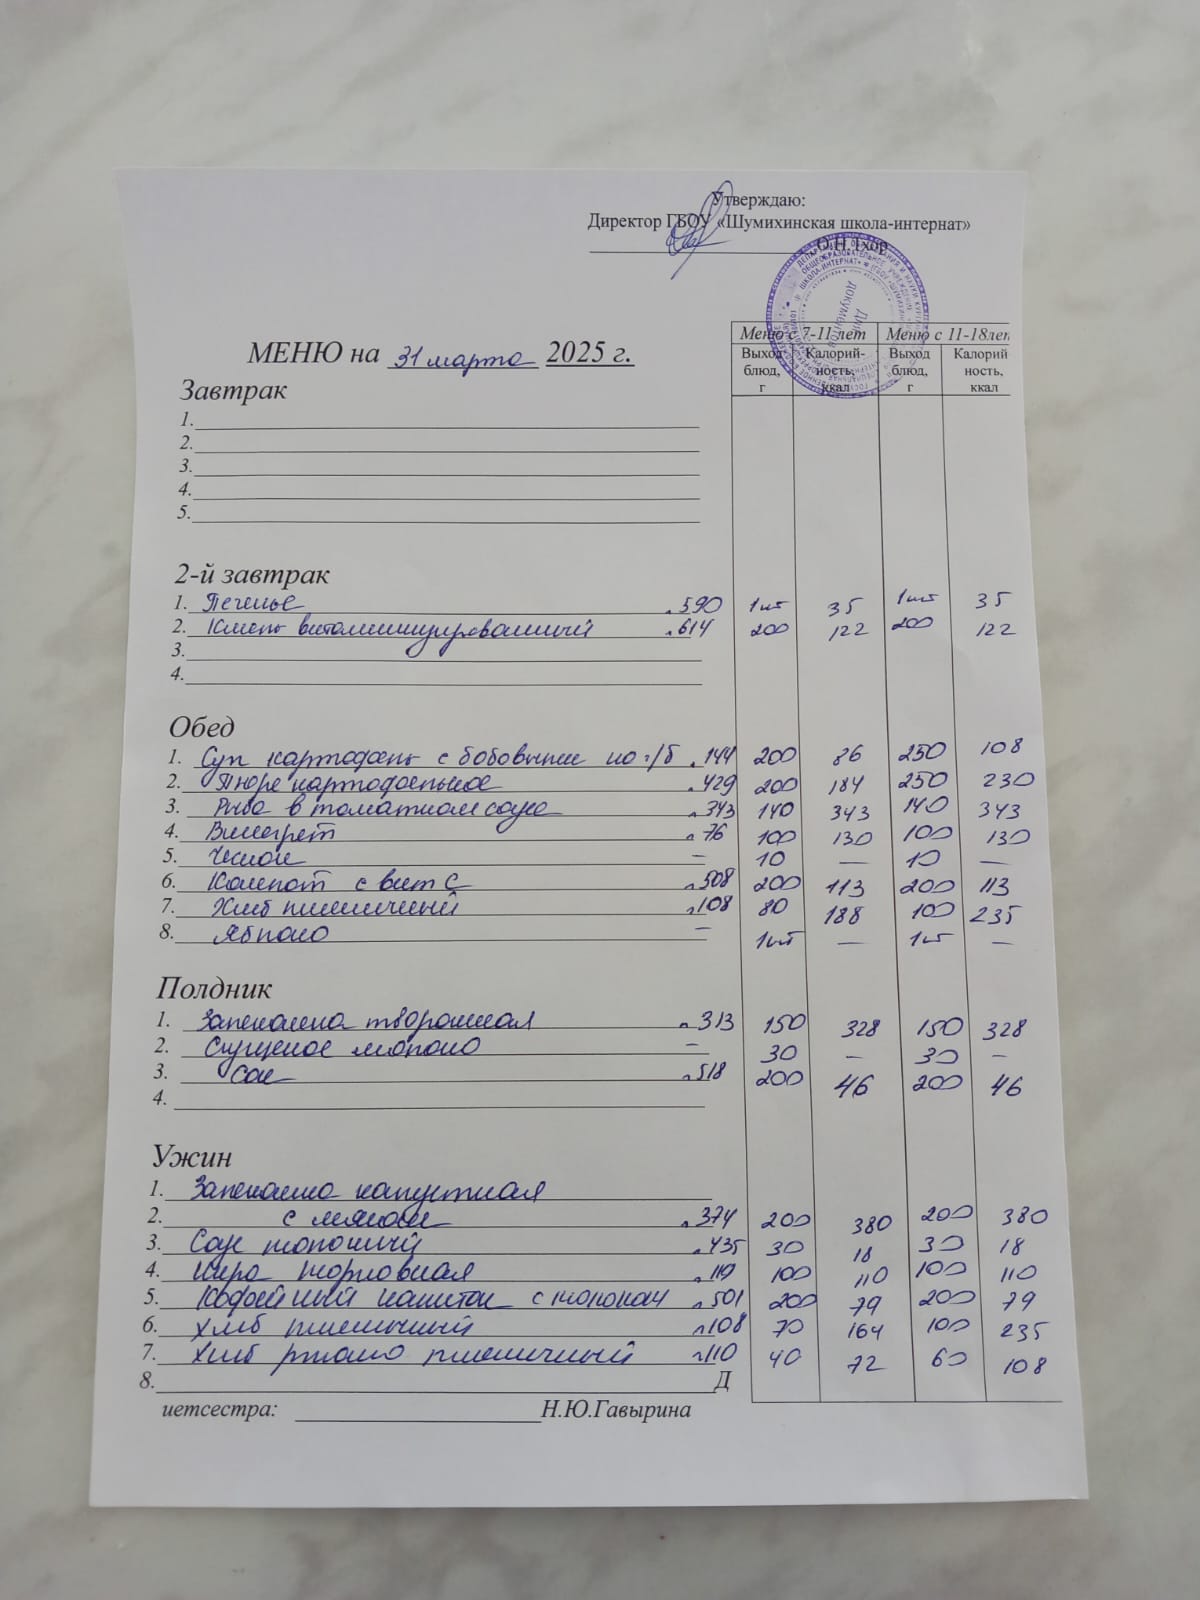 Утверждаю:
Директор ГБОУ «Шумихинская школа-интернат»
О.Н.Тхор
МЕНЮ на 31 марта 2025 г.
Меню с 7-11 лет Меню с 11-18лет
Выход блюд, г Калорий-ность, ккал Выход блюд, г Калорий ность, ккал
Завтрак
1.
2.
3.
4.
5.
2-й завтрак
1. Печенье п.590 1шт 35 1шт 35
2. Кисель витаминизированный п.614 200 122 200 122
3.
4.
Обед
1. Суп картофель с бобовыми на м/б п.144 200 86 250 108
2. Пюре картофельное п.429 200 184 250 230
3. Рыба в томатном соусе п.343 140 343 140 343
4. Винегрет п.76 100 130 100 130
5. Чеснок – 10 – 10 –
6. Компот с вит С п.508 200 113 200 113
7. Хлеб пшеничный п.108 80 188 100 235
8. Яблоко – 1шт – 1шт –
Полдник
1. Запеканка творожная п.313 150 328 150 328
2. Сгущеное молоко – 30 – 30 –
3. Сок п.518 200 46 200 46
4.
Ужин
1. Запеканка капустная
2. с мясом п.374 200 380 200 380
3. Соус молочный п.435 30 18 30 18
4. Икра морковная п.119 100 110 100 110
5. Кофейный напиток с молоком п.501 200 79 200 79
6. Хлеб пшеничный п.108 70 164 100 235
7. Хлеб ржано пшеничный п.110 40 72 60 108
8. Д
иетсестра: Н.Ю.Гавырина